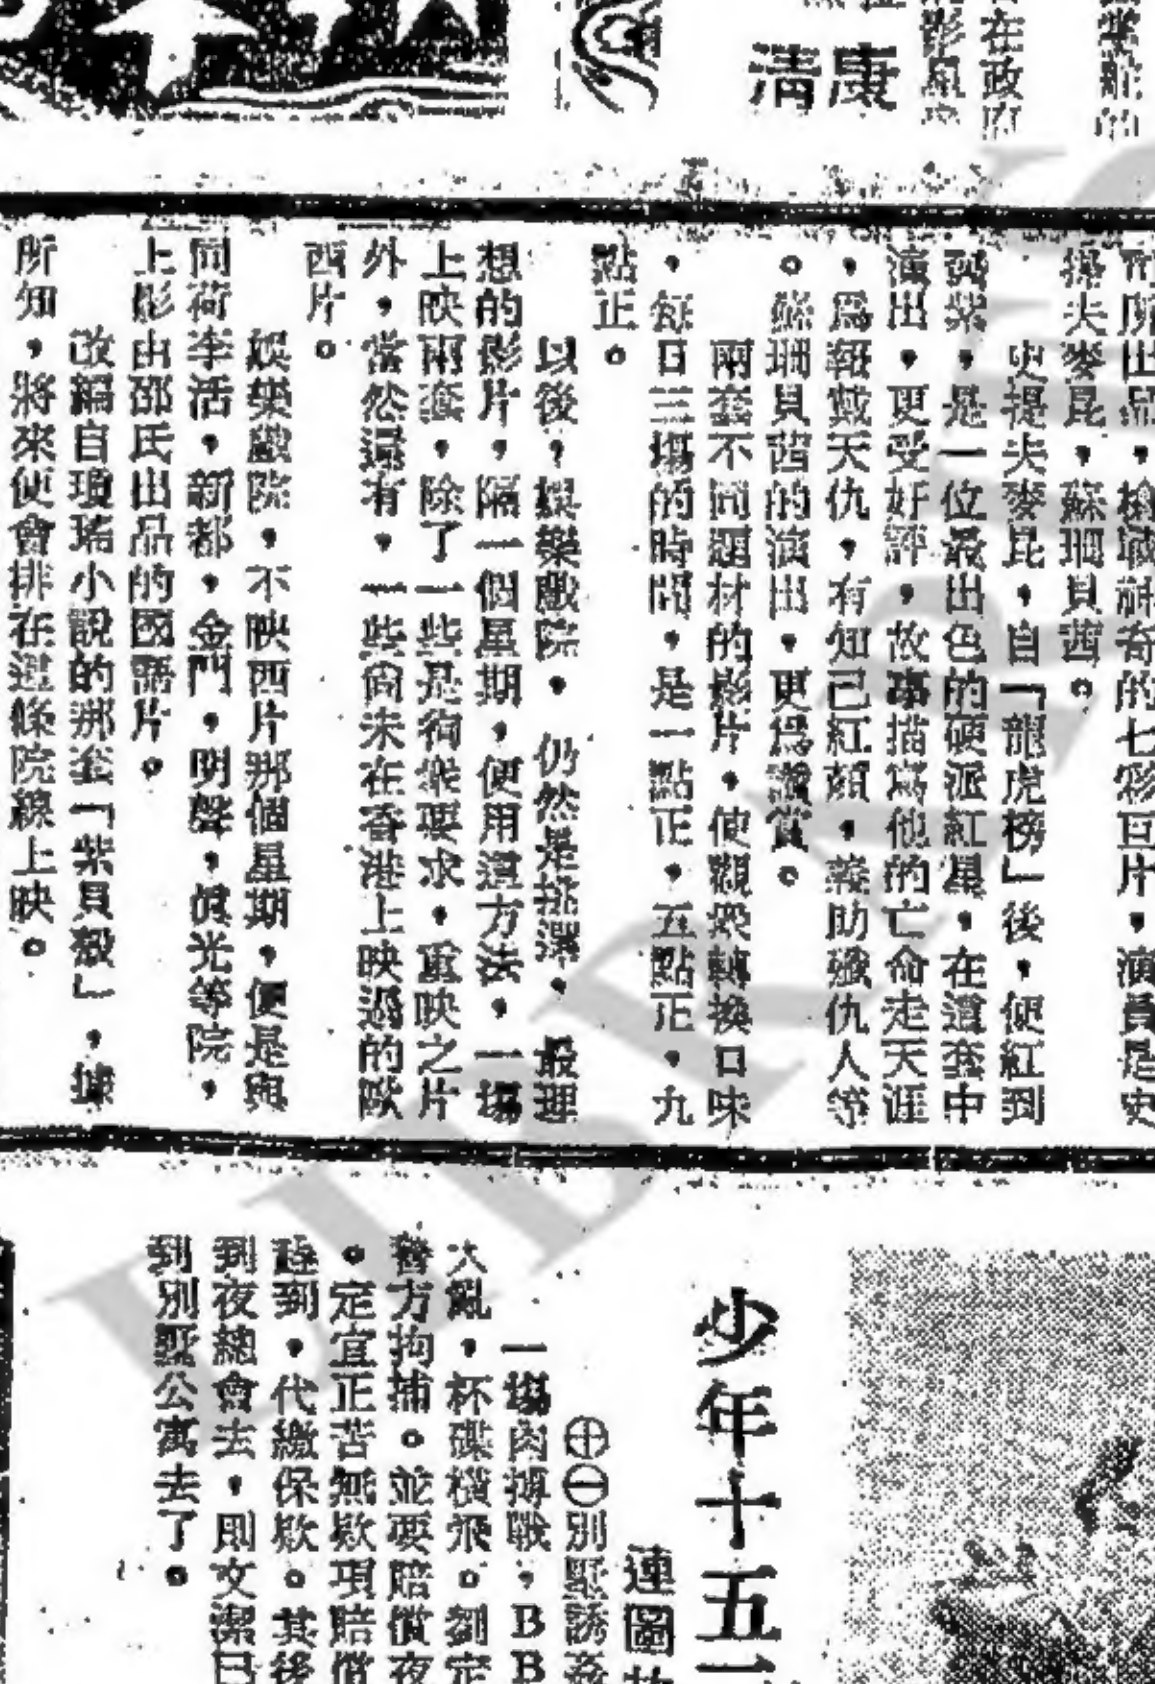 在政府
康
清
司所出品，槍聯耐奇的七彩巨片，演員是史
提夫麥昆，蘇珊貝茜。
史提夫麥昆，自「龍虎榜」後，便紅到
發紫，是一位最出色的硬派紅星，在這套中
演出，更受好評，故事描寫他的亡命走天涯
，爲報戴天仇，有知己紅顏，義助殲仇人等
。蘇珊貝茜的演出，更爲讚賞。
兩套不同題材的影片，使觀衆轉換口味
，每日三場的時間，是一點正，五點正，九
點正。
以後，娛樂戲院，仍然是挑選，最理
想的影片，隔一個星期，便用這方法，一場
上映兩套，除了一些是徇衆要求，重映之片
外，當然還有，一些尙未在香港上映過的歐
西片。
娛樂戲院，不映西片那個星期，便是與
同荷李活，新都，金門，明聲，眞光等院，
上影由邵氏出品的國語片。
改編自瓊瑤小說的那套「紫貝殼」，據
所知，將來便會排在這條院線上映。
少年十五
連圖
⊕⊖別墅誘姦
一場肉搏戰，BB
大亂，杯碟橫飛。劉定
警方拘捕。並要賠償夜
。定宜正苦無欵項賠償
趕到，代繳保欵。其後
到夜總會去，則文潔已
到別墅公寓去了。
LIBRA